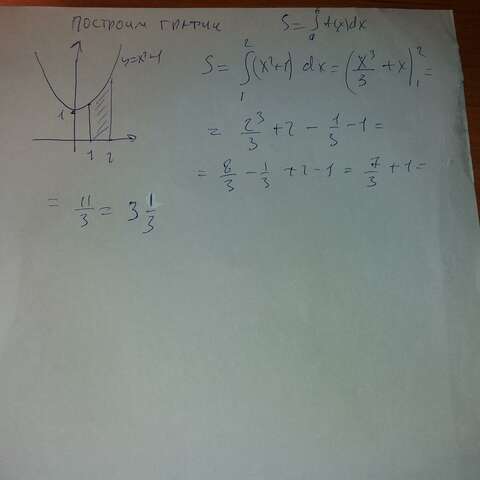 ПОСТРОИМ ГРАФИК
S = ∫ₐᵇ f(x)dx
y=x²+1
1
1 2
S = ∫₁² (x²+1) dx = (x³/3 + x)|₁² =
= 2³/3 + 2 - 1/3 - 1 =
= 8/3 - 1/3 + 2 - 1 = 7/3 + 1 =
= 11/3 = 3 1/3